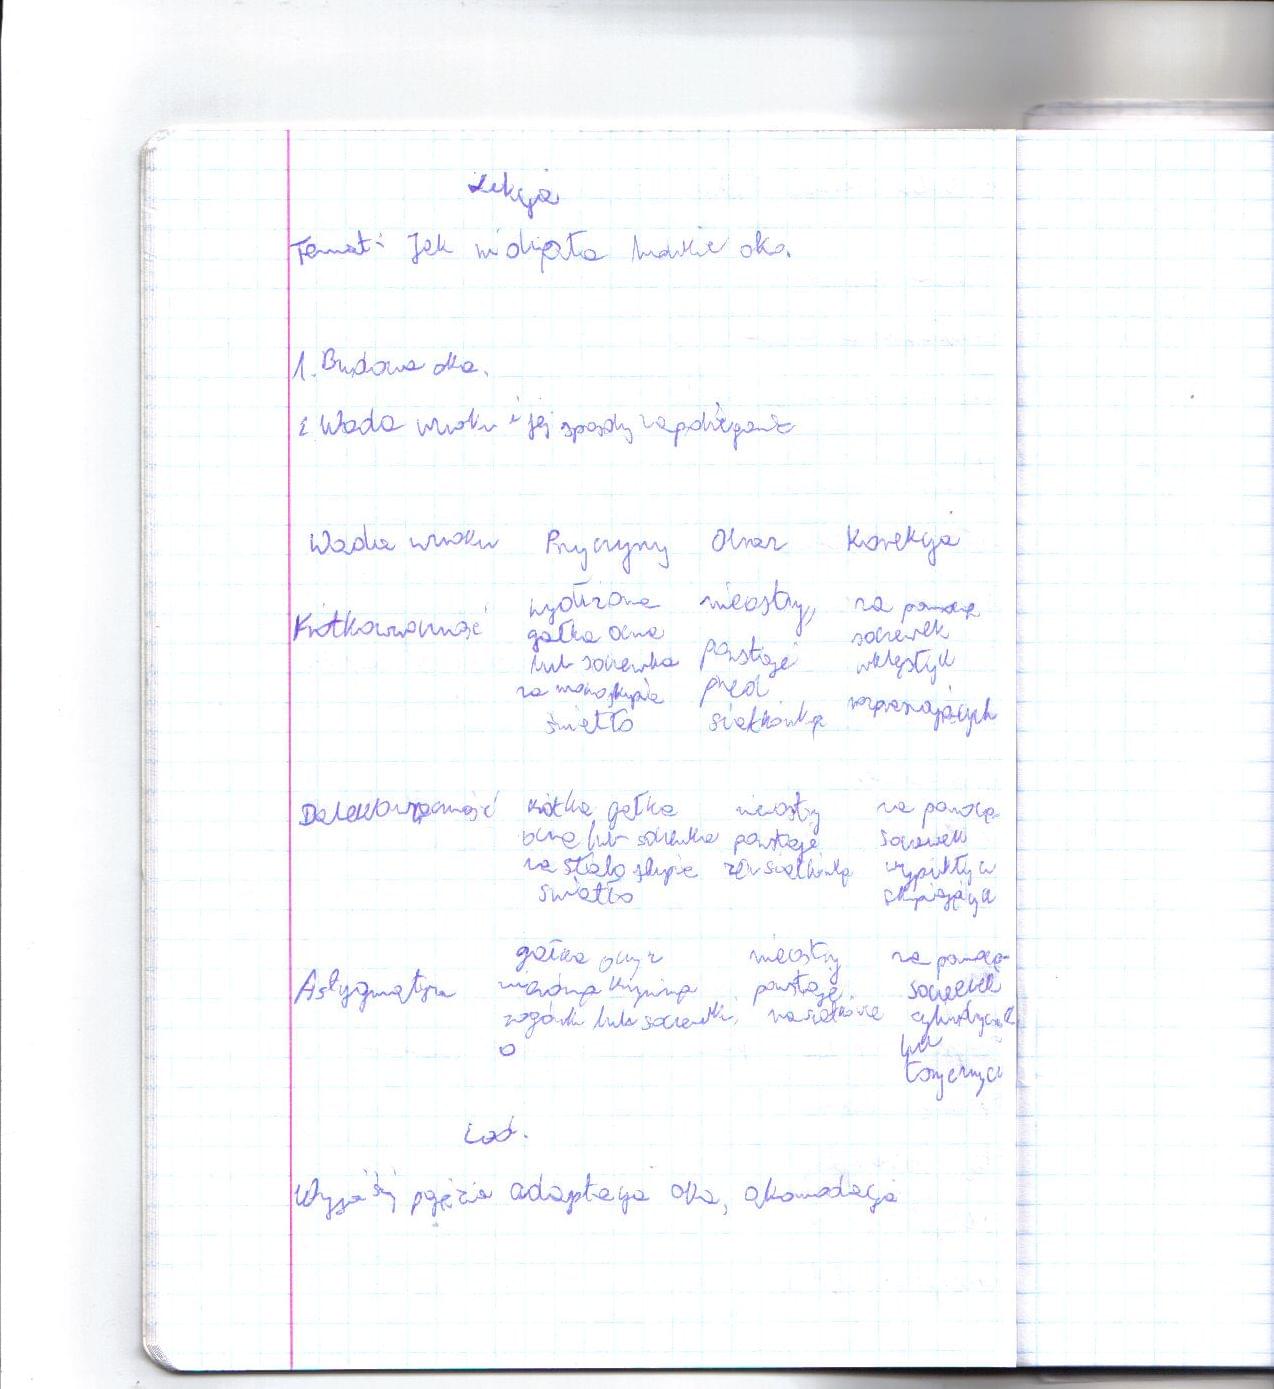 Lekcja
Temat: Jak działa ludzkie oko.
1. Budowa oka.
2 Wada wzroku i jej sposoby zapobiegania
Wada wzroku Przyczyny Obraz Korekcja
Krótkowzroczność wydłużona nieostry, za pomocą
gałka oczna soczewek
lub soczewka powstaje wklęsłych
za mocno skupia przed rozpraszających
światło siatkówką
Dalekowzroczność krótka gałka nieostry za pomocą
oczna lub soczewka powstaje soczewek
za słabo skupia za siatkówką wypukłych
światło skupiających
gałka nieostry za pomocą
Astygmatyzm powstaje soczewek
lub soczewki, na siatkówce cylindrycznych
lub
torycznych
Zad.
Wyjaśnij pojęcia adaptacja oka, akomodacja